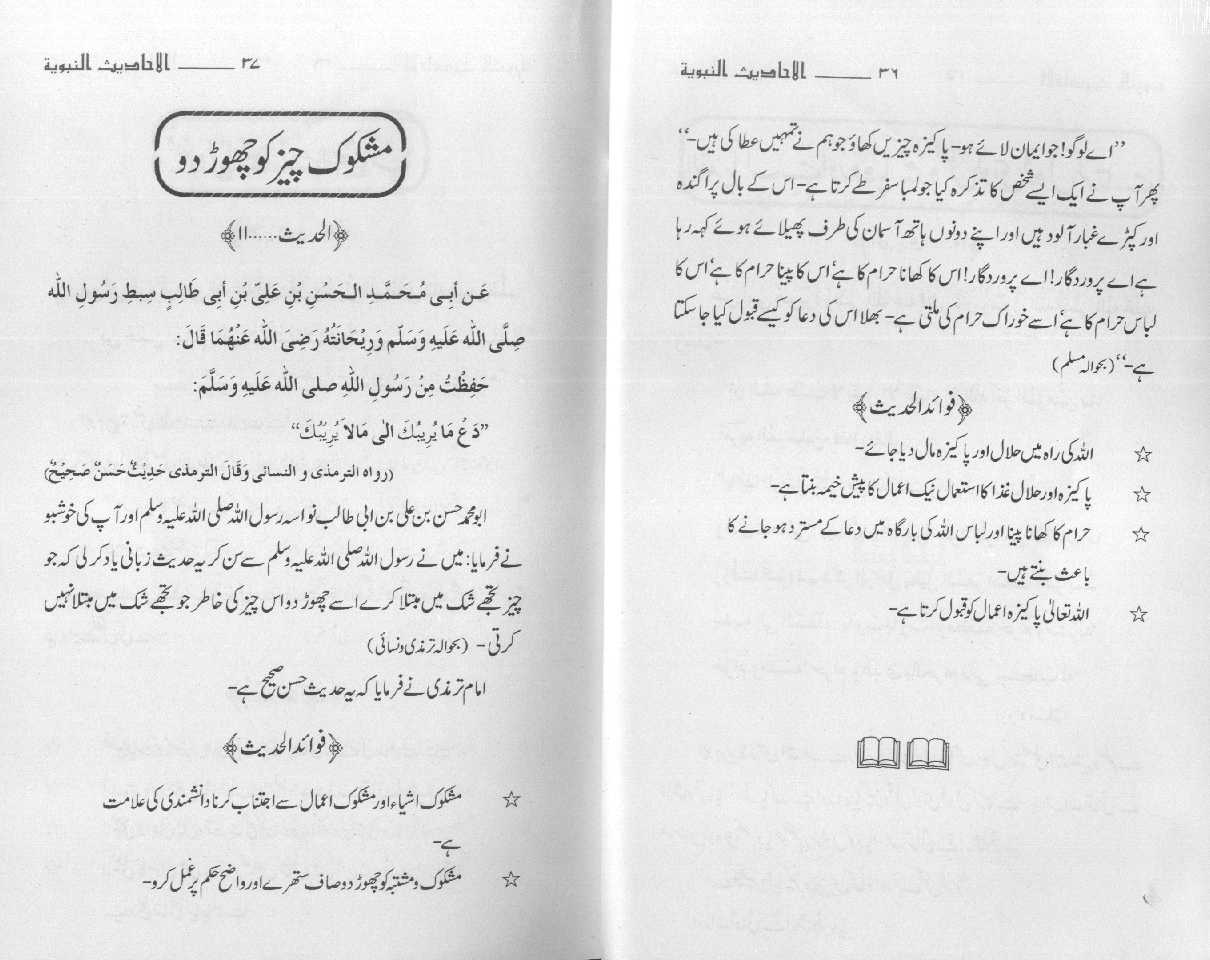 ۳۶ ــــــــ الاحادیث النبویة
’’اے لوگو! جو ایمان لائے ہو- پاکیزہ چیزیں کھاؤ جو ہم نے تمہیں عطا کی ہیں-‘‘
پھر آپ نے ایک ایسے شخص کا تذکرہ کیا جو لمبا سفر طے کرتا ہے- اس کے بال پراگندہ
اور کپڑے غبار آلود ہیں اور اپنے دونوں ہاتھ آسمان کی طرف پھیلائے ہوئے کہہ رہا
ہے اے پروردگار! اے پروردگار! اس کا کھانا حرام کا ہے‘ اس کا پینا حرام کا ہے‘ اس کا
لباس حرام کا ہے‘ اسے خوراک حرام کی ملتی ہے- بھلا اس کی دعا کو کیسے قبول کیا جا سکتا
ہے-‘‘ (بحوالہ مسلم)
﴿فوائد الحدیث﴾
☆ اللہ کی راہ میں حلال اور پاکیزہ مال دیا جائے-
☆ پاکیزہ اور حلال غذا کا استعمال نیک اعمال کا پیش خیمہ بنتا ہے-
☆ حرام کا کھانا پینا اور لباس اللہ کی بارگاہ میں دعا کے مسترد ہو جانے کا
باعث بنتے ہیں-
☆ اللہ تعالیٰ پاکیزہ اعمال کو قبول کرتا ہے-
۳۷ ــــــــ الاحادیث النبویة
مشکوک چیز کو چھوڑ دو
﴿الحدیث......۱۱﴾
عَن أبی مُحَمَّدِ الحَسْنِ بْنِ عَلِیّ بْنِ أبی طَالِبٍ سِبطِ رَسُولِ اللّٰه
صلَّی اللّٰه عَلَیهِ وَسَلَّم وَرِیْحَانَتُهُ رَضِیَ اللّٰه عَنْهُمَا قَالَ:
حَفِظْتُ مِنْ رَسُولِ اللّٰهِ صلی اللّٰه عَلَیهِ وَسَلَّمَ:
’’دَعْ مَا یُرِیبُكَ الٰی مَالاَ یَرِیْبُكَ‘‘
(رواه الترمذی و النسائی وَقَالَ الترمذی حَدِیْثٌ حَسَنٌ صَحِیْحٌ)
ابو محمد حسن بن علی بن ابی طالب نواسہ رسول اللہ صلی اللہ علیہ وسلم اور آپ کی خوشبو
نے فرمایا: میں نے رسول اللہ صلی اللہ علیہ وسلم سے سن کر یہ حدیث زبانی یاد کر لی کہ جو
چیز تجھے شک میں مبتلا کرے اسے چھوڑ دو اس چیز کی خاطر جو تجھے شک میں مبتلا نہیں
کرتی - (بحوالہ ترمذی و نسائی)
امام ترمذی نے فرمایا کہ یہ حدیث حسن صحیح ہے-
﴿فوائد الحدیث﴾
☆ مشکوک اشیاء اور مشکوک اعمال سے اجتناب کرنا دانشمندی کی علامت
ہے-
☆ مشکوک و مشتبہ کو چھوڑ دو صاف ستھرے اور واضح حکم پر عمل کرو-